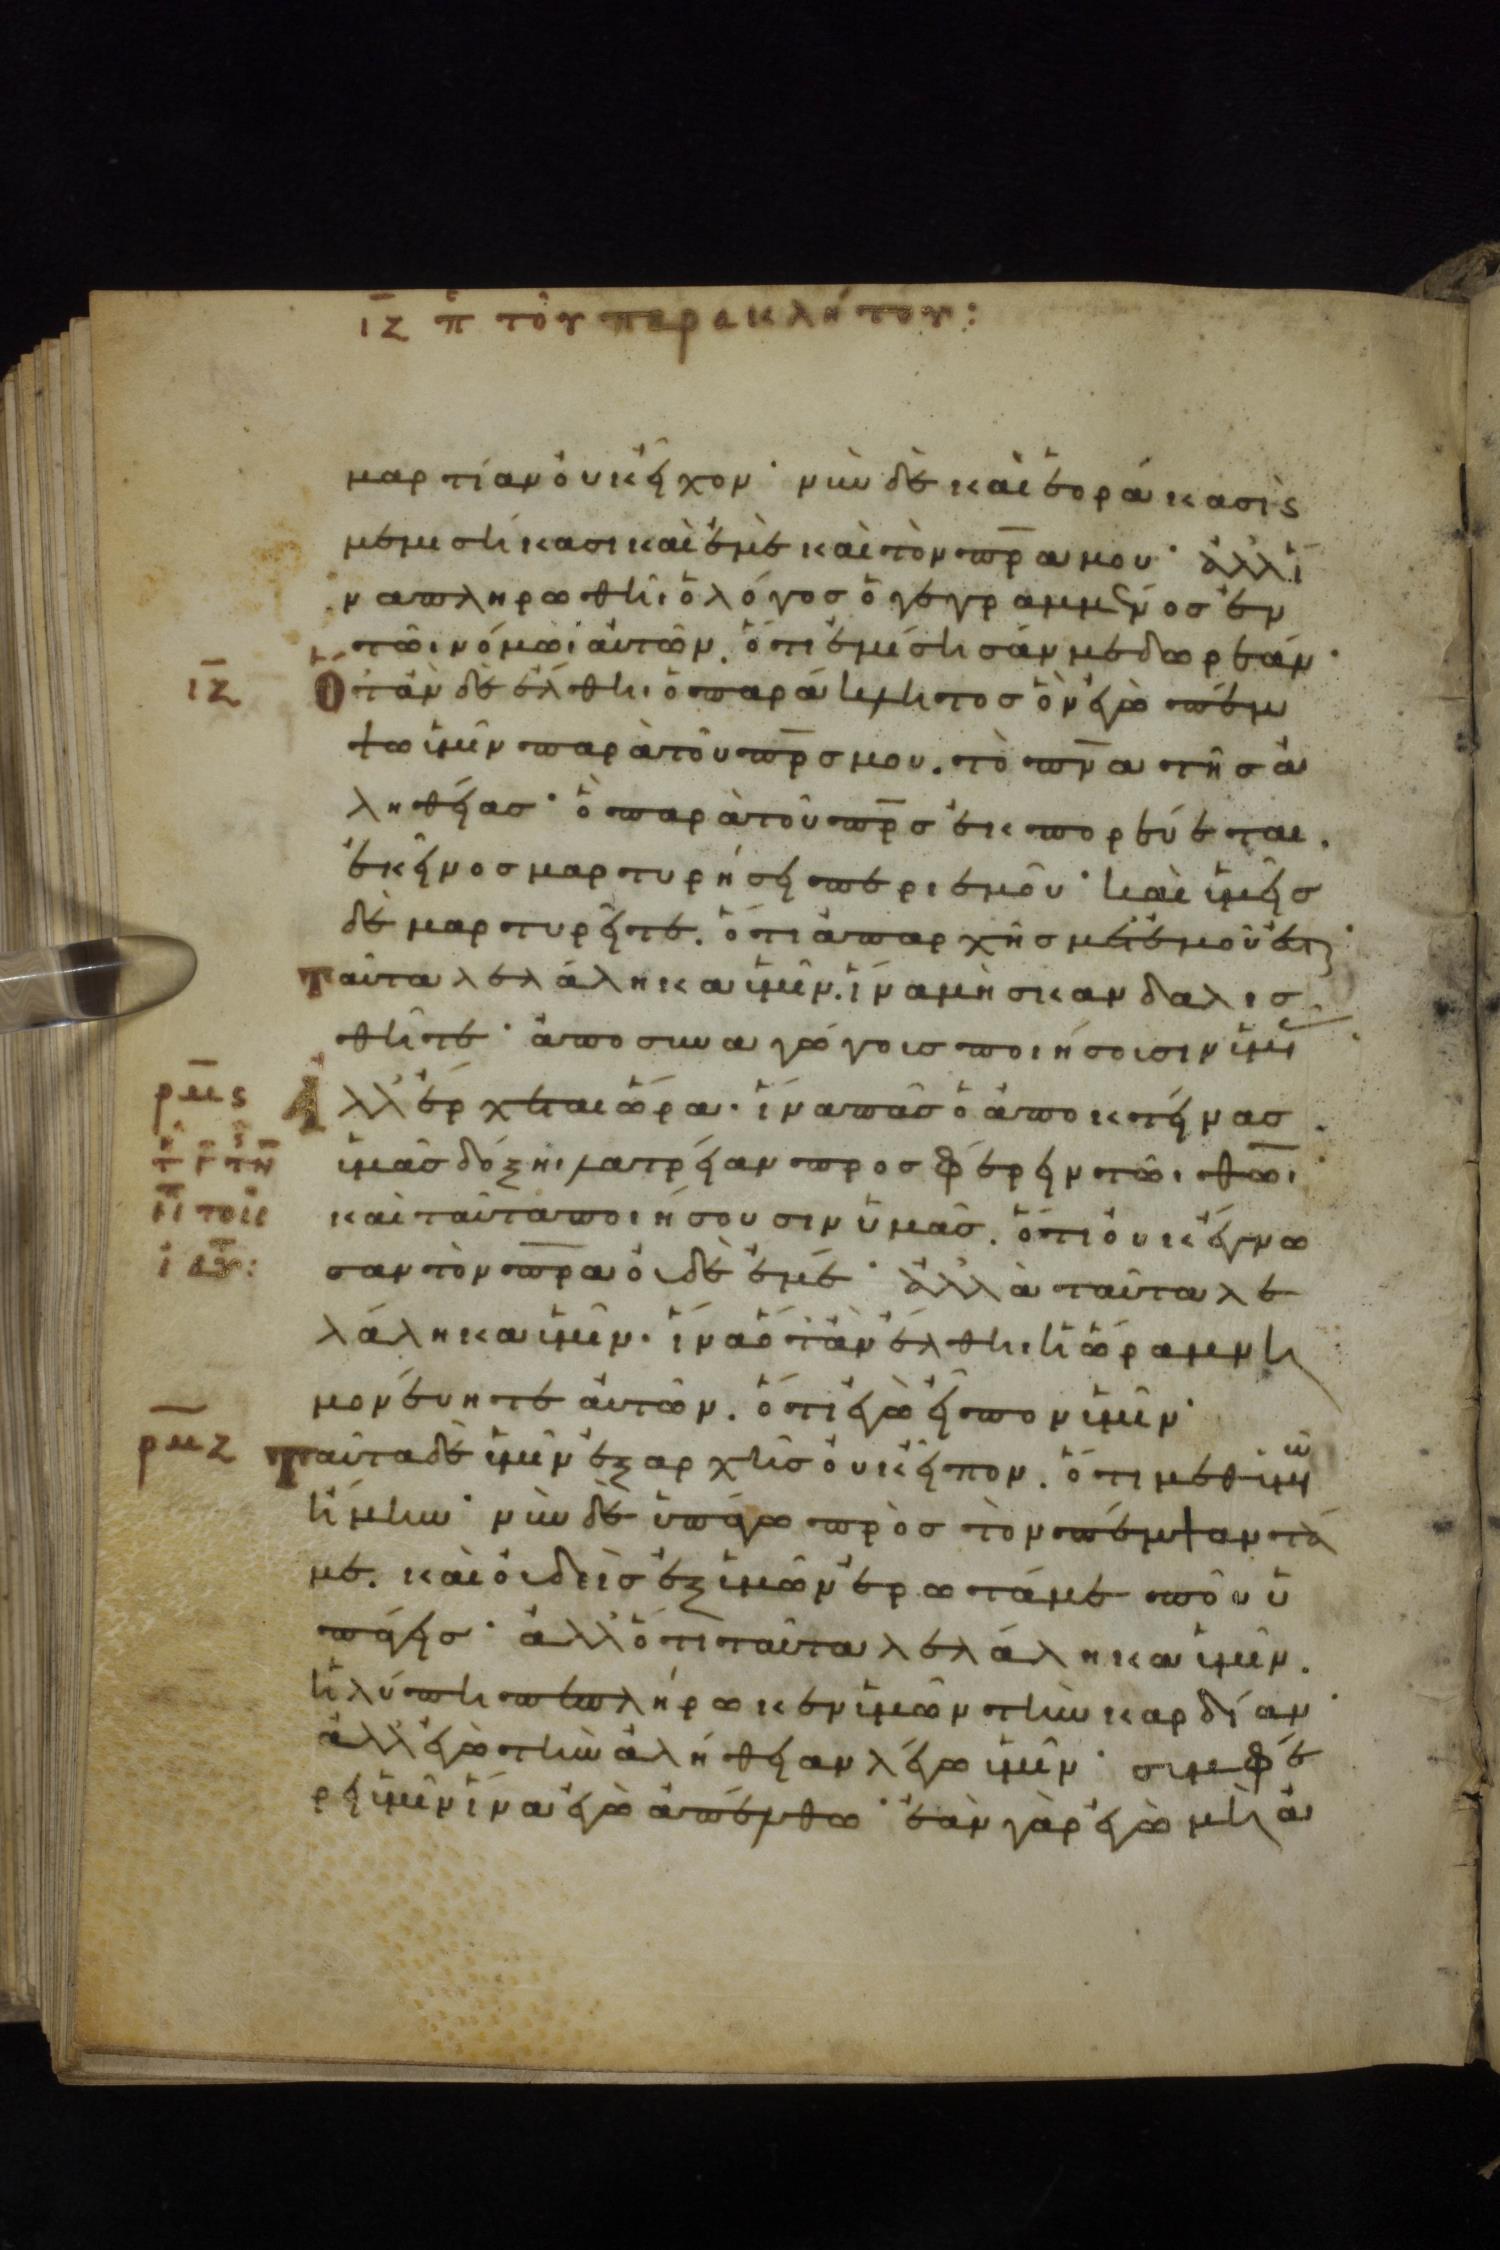 ιζ π̅ τοῦ παρακλήτου:
μαρτίαν οὐκ εἶχον· νῦν δὲ καὶ ἑοράκασι ϛ
μεμεσήκασι καὶ ἐμὲ καὶ τὸν πρ̅α μου· ἀλλ' ἵ
να πληρωθῆι ὁ λόγοσ ὁ γεγραμμένοσ ἐν
τῶι νόμωι αὐτῶν. ὅτι ἐμίσησάν με δωρεάν·
ιζ
Ὅταν δὲ ἔλθηι ὁ παράκλητοσ ὃν ἐγὼ πέμ
ψω ὑμῖν παρὰ τοῦ πρ̅σ μου. τὸ πν̅α τῆσ ἀ
ληθείασ· ὃ παρὰ τοῦ πρ̅σ ἐκπορεύεται.
ἐκεῖνοσ μαρτυρήσει περὶ ἐμοῦ· καὶ ὑμεῖσ
δὲ μαρτυρεῖτε. ὅτι ἀπαρχῆσ μετ' ἐμοῦ ἐστ
Ταῦτα λελάληκα ὑμῖν. ἵνα μὴ σκανδαλισ
θῆτε· ἀποσυναγώγοισ ποιήσοισιν ὑμ
ρμϛ
Ἀλλ' ἔρχεται ὥρα. ἵνα πᾶσ ὁ ἀποκτείνασ
ὑμᾶσ δόξηι λατρείαν προσφέρειν τῶι θω̅ι·
καὶ ταῦτα ποιήσουσιν ὑμᾶσ. ὅτι οὐκ ἔγνω
σαν τὸν πρ̅α οὐδὲ ἐμέ· ἀλλὰ ταῦτα λε
λάληκα ὑμῖν. ἵνα ὅταν ἔλθηι ἡ ὥρα μνη
μονεύητε αὐτῶν. ὅτι ἐγὼ εἶπον ὑμῖν·
ρμζ
Ταῦτα δὲ ὑμῖν ἐξαρχῆσ οὐκ εἶπον. ὅτι μεθ' ὑμῶ
ἤμην· νῦν δὲ ὑπάγω πρὸσ τὸν πέμψαντά
με. καὶ οὐδεὶσ ἐξ ὑμῶν ἐρωτά με ποῦ ὑ
πάγεισ· ἀλλ' ὅτι ταῦτα λελάληκα ὑμῖν.
ἡ λύπη πεπλήρωκεν ὑμῶν τὴν καρδίαν·
ἀλλ' ἐγὼ τὴν ἀλήθειαν λέγω ὑμῖν· συμφέ
ρει ὑμῖν ἵνα ἐγὼ ἀπέλθω· ἐὰν γὰρ ἐγὼ μὴ ἀ